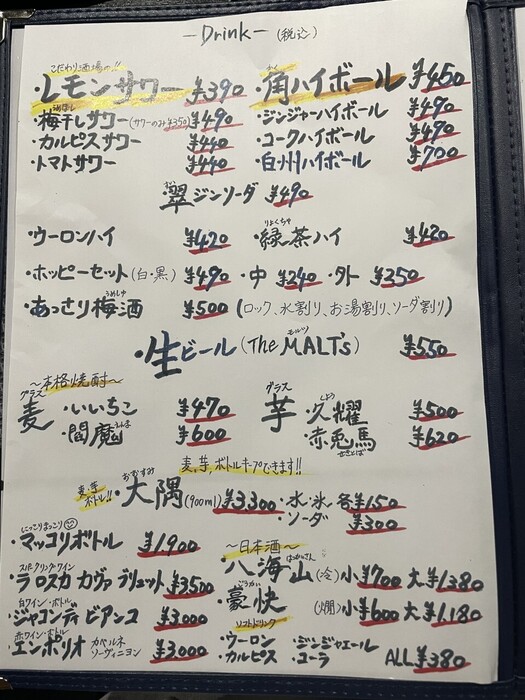 －Drink－(税込)
こだわり酒場の!!
・レモンサワー ¥390
・角ハイボール ¥450
かく
・梅干しサワー(サワーのみ¥350) ¥490
うめぼし
・ジンジャーハイボール ¥490
・カルピスサワー ¥440
・コークハイボール ¥490
・トマトサワー ¥440
・白州ハイボール ¥700
・翠ジンソーダ ¥490
・ウーロンハイ ¥420
・緑茶ハイ ¥420
りょくちゃ
・ホッピーセット(白・黒) ¥490 ・中 ¥240 ・外 ¥250
・あっさり梅酒 ¥500 (ロック、水割り、お湯割り、ソーダ割り)
うめしゅ
・生ビール(The MALT's) ¥550
モルツ
〜本格焼酎〜
グラス
麦 ・いいちこ ¥470
・閻魔 ¥600
えんま
グラス
芋 ・久耀 ¥500
・赤兎馬 ¥620
せきとば
麦、芋、ボトルキープできます!!
麦、芋 ボトル!!
・大隅(900ml) ¥3,300
おおすみ
・水・氷 各¥150
・ソーダ ¥300
にっこりまっこり
・マッコリボトル ¥1,900
スパークリングワイン
・ラロスカ カヴァ ブリュット ¥3,500
白ワイン・ボトル
・ジャコンディ ビアンコ ¥3,000
赤ワイン・ボトル
・エンポリオ カベルネ ソーヴィニヨン ¥3,000
〜日本酒〜
・八海山(冷) 小¥700 大¥1,380
はっかいさん
・豪快 (燗) 小¥600 大¥1,180
ごうかい
ソフトドリンク
・ウーロン ・ジンジャエール
・カルピス ・コーラ ALL ¥380